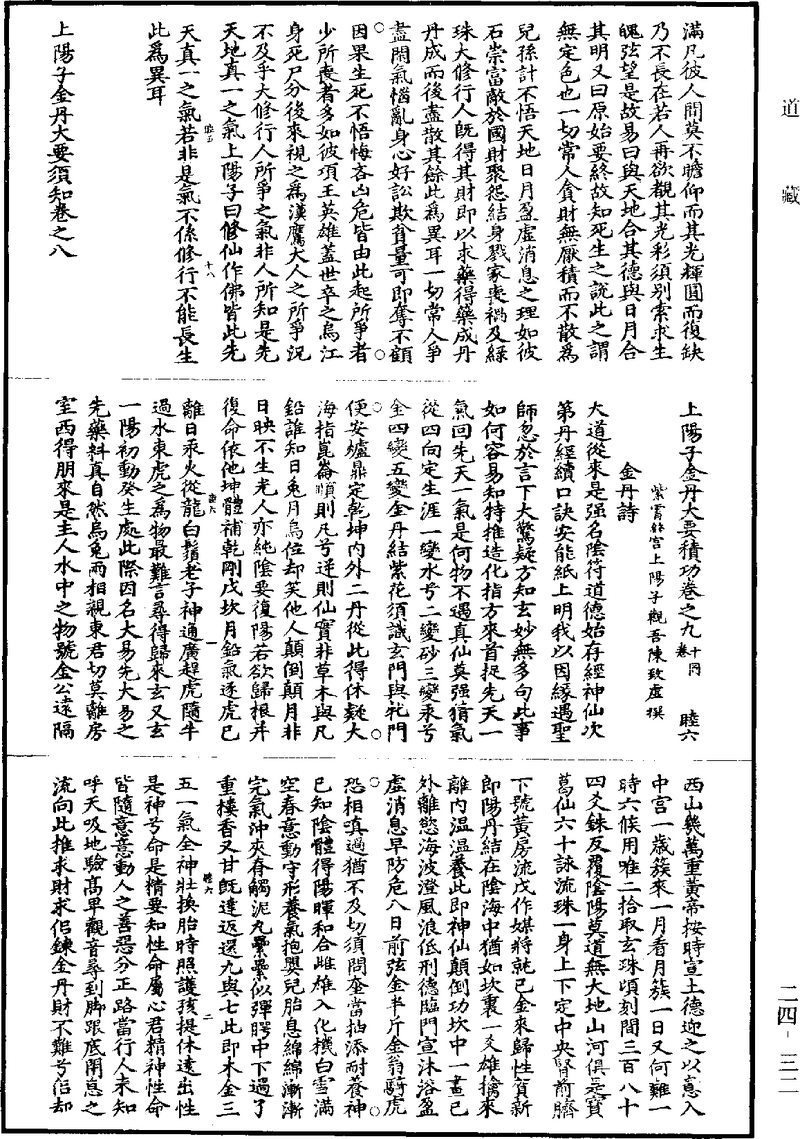 道藏
滿凡彼人間莫不瞻仰而其光輝圓而復缺
乃不長在若人再欲覩其光彩須别索求生
魄弦望是故易曰與天地合其德與日月合
其明又曰原始要終故知死生之說此之謂
無定色也一切常人貪財無厭積而不散為
兒孫計不悟天地日月盈虛消息之理如彼
石崇富敵於國財聚怨結身戮家喪禍及緑
珠大修行人既得其財即以求藥得藥成丹
丹成而後盡散其餘此為異耳一切常人爭
盡閑氣惱亂身心好訟欺貧量可即奪不顧
因果生死不悟悔吝凶危皆由此起所爭者
少所喪者多如彼項王英雄蓋世卒之烏江
身死尸分後來視之為漢鷹犬人之所爭況
不及乎大修行人所爭之氣非人所知是先
天地真一之氣上陽子曰修仙作佛皆此先
睦五 十八
天真一之氣若非是氣不係修行不能長生
此為異耳
上陽子金丹大要須知卷之八
上陽子金丹大要積功卷之九 十同卷 睦六
紫霄絳宮上陽子觀吾陳致虛撰
金丹詩
大道從來是强名陰符道德始存經神仙次
第丹經續口訣安能紙上明我以因緣遇聖
師忽於言下大驚疑方知玄妙無多句此事
如何容易知特推造化指方來首捉先天一
氣回先天一氣是何物不遇真仙莫强猜氣
從四向定生涯一變水兮二變砂三變汞兮
金四變五變金丹結紫花須識玄門與牝門
便安爐鼎定乾坤内外二丹從此得休疑大
海指崑崙順則凡兮逆則仙實非草木與凡
鉛誰知日兔月烏位却笑他人顛倒顛月非
日映不生光人亦純陰要復陽若欲歸根并
復命依他坤體補乾剛戊坎月鉛氣逐虎已
睦六 一
離日汞火從龍白鬚老子神通廣趕虎隨牛
過水東虎之為物最難言尋得歸來玄又玄
一陽初動癸生處此際因名大易先大易之
先藥料真自然烏兔兩相親東君切莫離房
室西得朋來是主人水中之物號金公遠隔
西山幾萬重黃帝按時宣土德迎之以意入
中宫一歲簇來一月看月簇一日又何難一
時六候用唯二拾取玄珠頃刻間三百八十
四爻銖反覆陰陽莫道無大地山河俱是寶
葛仙六十詠流珠一身上下定中央腎前臍
下號黃房流戊作媒將就已金來歸性貨新
郎陽丹結在陰海中猶如坎裏一爻雄擒來
離内温温養此即神仙顛倒功坎中一畫已
外離慾海波澄風浪低刑德臨門宣沐浴盈
虛消息早防危八日前弦金半斤金翁騎虎
恐相嗔過猶不及切須問奎當抽添耐養神
已知陰體得陽暉和合雌雄入化機白雪滿
空春意動守形養氣抱嬰兒胎息綿綿漸漸
完氣沖夾脊觸泥丸纍纍似彈腭中下過了
重樓香又甘既達返還九與七此即木金三
睦六 二
五一氣全神壯換胎時照護孩提休遠出性
是神兮命是精要知性命屬心君精神性命
皆隨意意動人之善惡分正路當行人未知
呼天吸地驗髙卑觀音尋到脚跟底閉息之
流向此推求財求侶鍊金丹財不難兮侣却
二四-三二